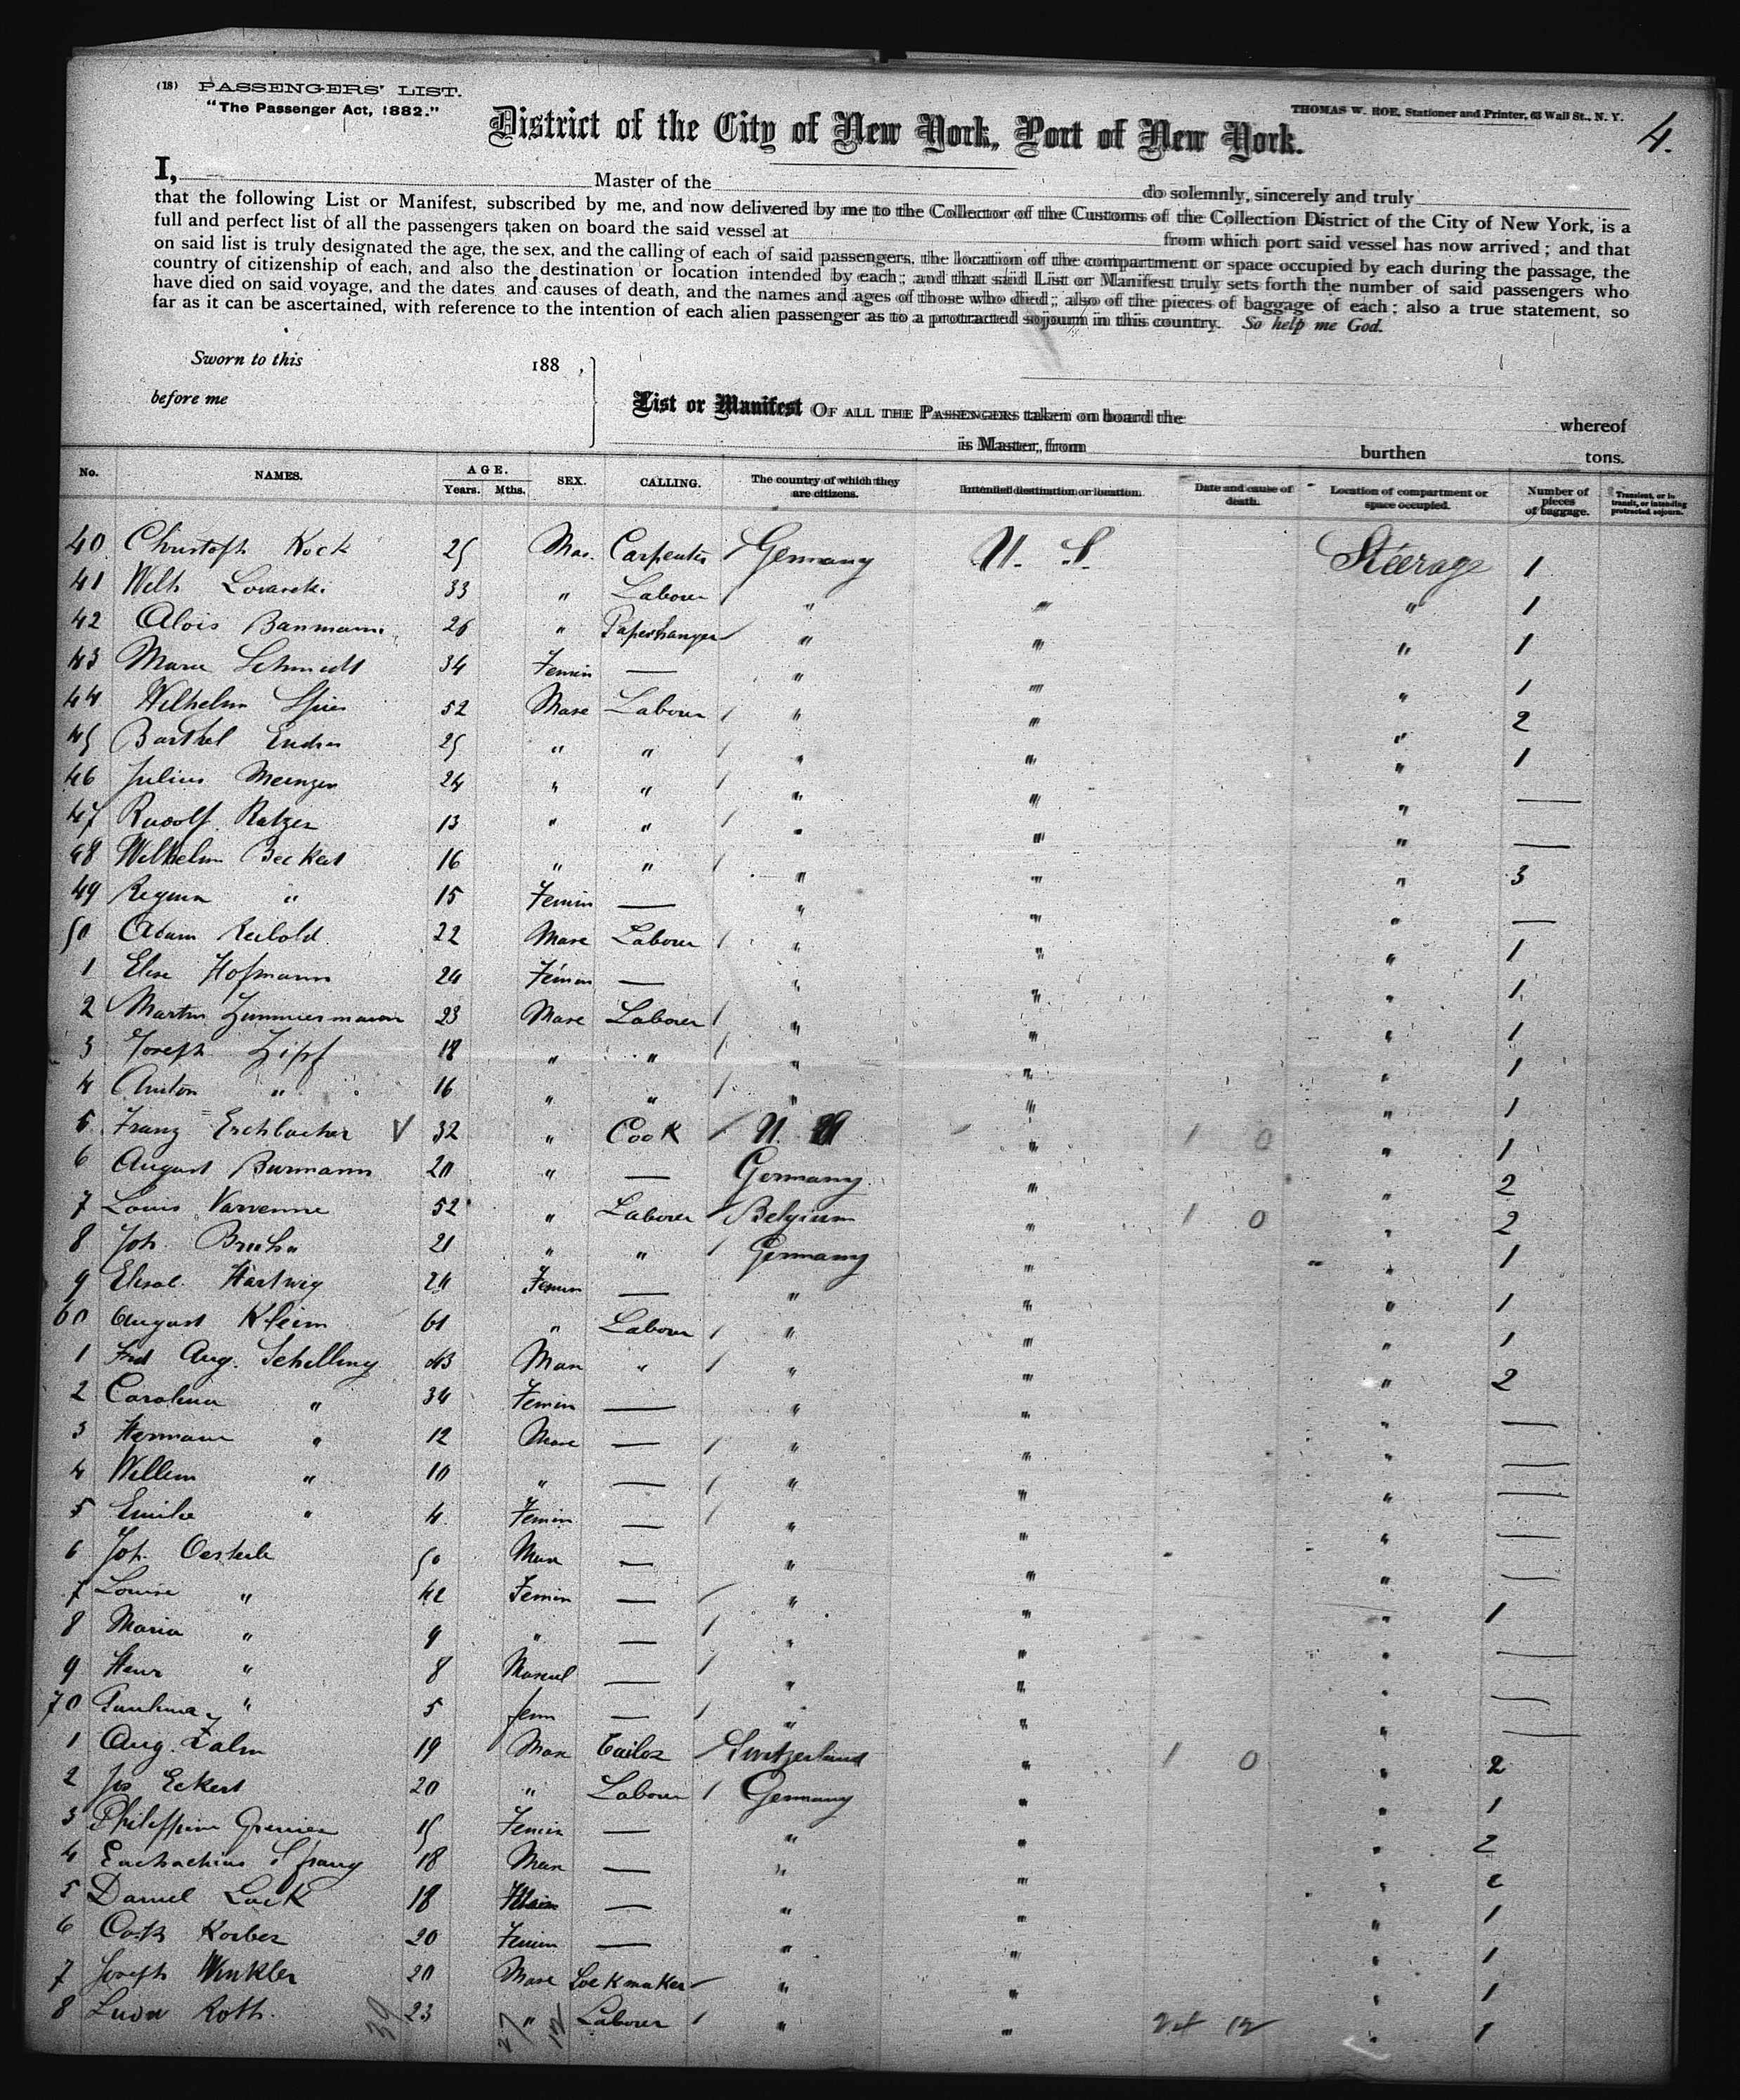 (18) PASSENGERS' LIST.
"The Passenger Act, 1882."
THOMAS W. ROE, Stationer and Printer, 63 Wall St., N. Y.
4.
District of the City of New York, Port of New York.
I, Master of the do solemnly, sincerely and truly
that the following List or Manifest, subscribed by me, and now delivered by me to the Collector of the Customs of the Collection District of the City of New York, is a
full and perfect list of all the passengers taken on board the said vessel at from which port said vessel has now arrived; and that
on said list is truly designated the age, the sex, and the calling of each of said passengers, the location of the compartment or space occupied by each during the passage, the
country of citizenship of each, and also the destination or location intended by each; and that said List or Manifest truly sets forth the number of said passengers who
have died on said voyage, and the dates and causes of death, and the names and ages of those who died; also of the pieces of baggage of each; also a true statement, so
far as it can be ascertained, with reference to the intention of each alien passenger as to a protracted sojourn in this country. So help me God.
Sworn to this 188 ,
before me
List or Manifest OF ALL THE PASSENGERS taken on board the whereof
is Master, from burthen tons.
No. NAMES. AGE. Years. Mths. SEX. CALLING. The country of which they are citizens. Intended destination or location. Date and cause of death. Location of compartment or space occupied. Number of pieces of baggage. Transient, or in transit, or intending protracted sojourn.
40 Christoph Kock 25 Mas. Carpenter / Germany U. S. Steerage 1
41 Wilh 33 " Labourer / " " " 1
42 Alois Banmann 26 " Paperhanger / " " " 1
43 Marie Schmidt 34 Femin — " " " 1
44 Wilhelm Spies 52 Masc Labourer / " " " 2
45 Barthel Endres 25 " " / " " " 1
46 Julius Menzer 24 " " / " " " —
47 Rudolf Ratzer 13 " " / " " " —
48 Wilhelm Beckert 16 " " / " " " 3
49 Regina " 15 Femin — " " " —
50 Adam Reibold 22 Masc Labourer / " " " 1
1 Elise Hofmann 24 Femin — " " " 1
2 Martin Zimmermann 23 Masc Labourer / " " " 1
3 Joseph Zipf 18 " " / " " " 1
4 Anton " 16 " " / " " " 1
5 Franz Erchbacher V 32 " Cook / U. " 1 0 " 1
6 August Burmann 20 " — Germany " " 2
7 Louis Varvenne 52 " Labourer / Belgium " 1 0 " 2
8 Joh. Bruhn 21 " " / Germany " " 1
9 Elisab. Hartwig 24 Femin — " " " 1
60 August Klein 61 " Labourer / " " " 1
1 Fred Aug. Schelling 43 Mas " / " " " 2
2 Carolina " 34 Femin — " " " —
3 Hermann " 12 Masc — / " " " —
4 Willem " 10 " — / " " " —
5 Emilie " 4 Femin — / " " " —
6 Joh. Oesterle 50 Masc — " " " —
7 Louise " 42 Femin — / " " " 1
8 Maria " 9 " — / " " " —
9 Henr " 8 Mascul — / " " " —
70 Paulina " 5 fem — / " " " —
1 Aug. Zahn 19 Masc Tailor / Switzerland " 1 0 " 2
2 Jos Eckert 20 " Labourer / Germany " " 1
3 Philippine 15 Femin — " " " 2
4 18 Masc — " " " 2
5 Daniel Lock 18 — " " " 1
6 Cath Korber 20 Femin — " " " 1
7 Joseph Winkler 20 Masc Lockmaker / " " " 1
8 Roth. 23 " Labourer / " " " 1
39 27 12 24 12